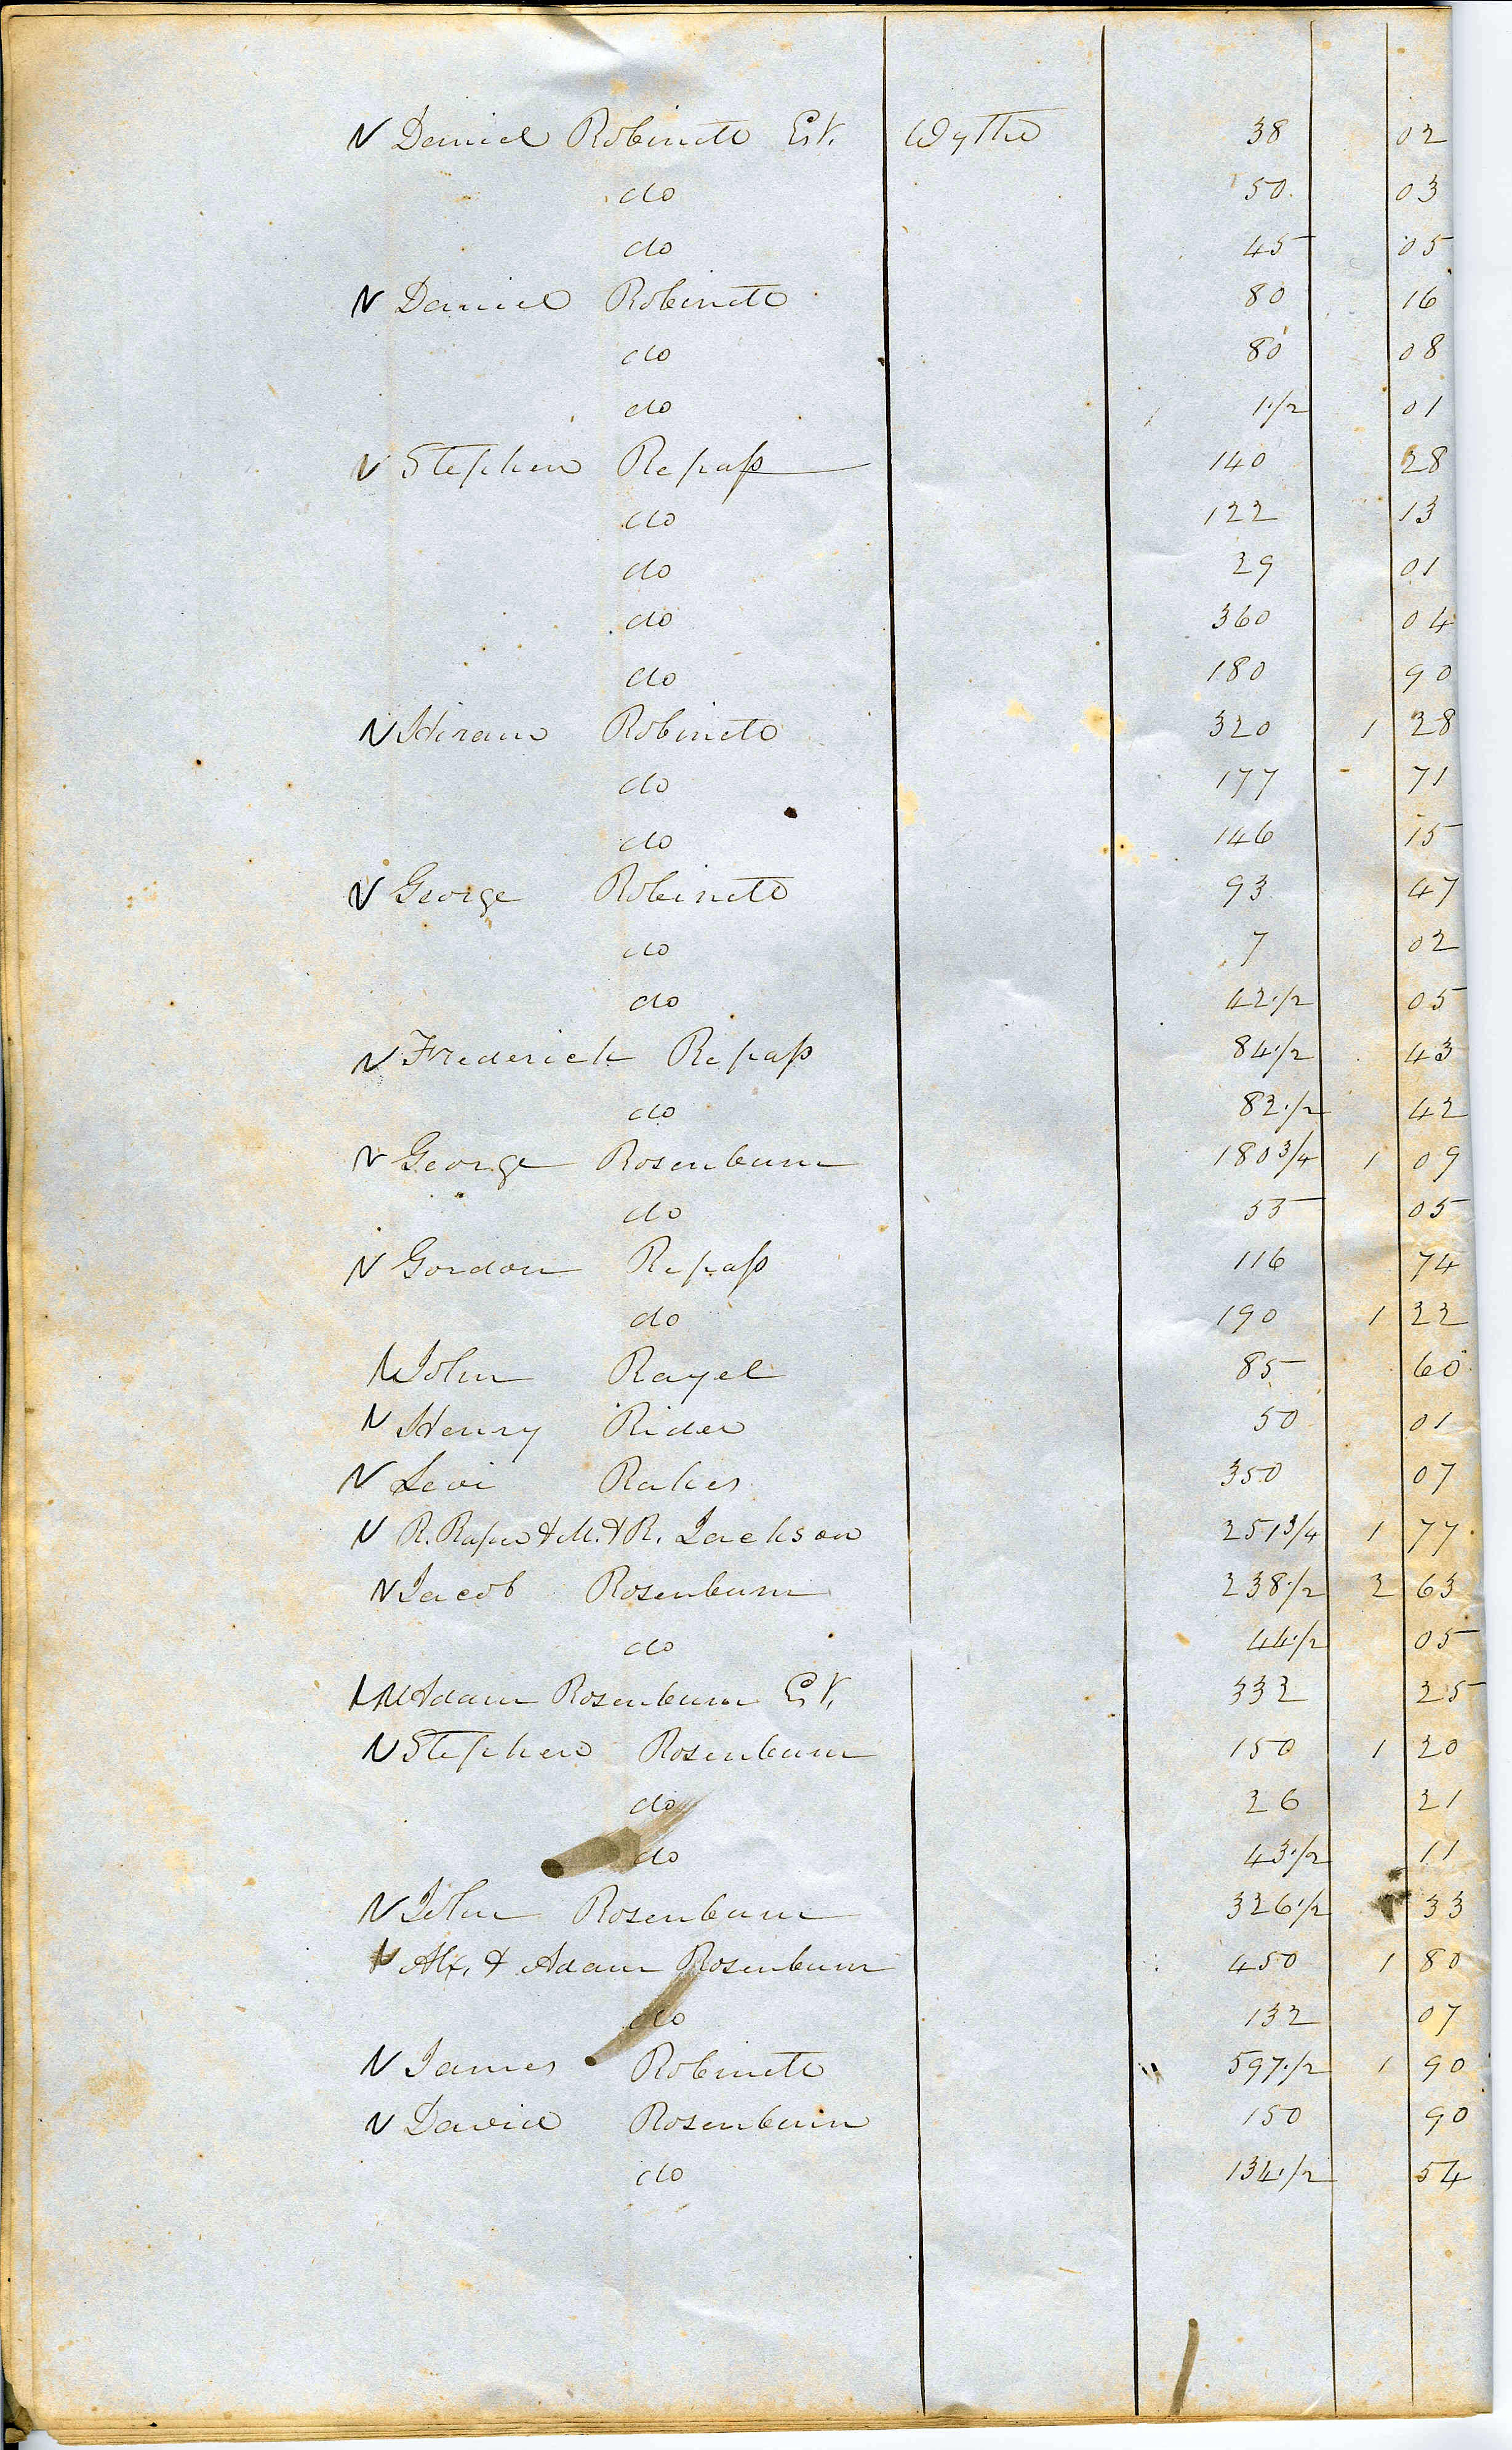 ✓ Daniel Robinett Est. Wythe 38 02
do 50 03
do 45 05
✓ Daniel Robinett 80 16
do 80 08
do 1 1/2 01
✓ Stephen Repass 140 28
do 122 13
do 29 01
do 360 04
do 180 90
✓ Hiram Robinett 320 1 28
do 177 71
do 146 15
✓ George Robinett 93 47
do 7 02
do 42 1/2 05
✓ Frederick Repass 84 1/2 43
do 82 1/2 42
✓ George Rosenbaum 180 3/4 1 09
do 55 05
✓ Gordon Repass 116 74
do 190 1 22
✓ John Rayel 85 60
✓ Henry Rider 50 01
✓ Levi Rakes 350 07
✓ R. Raper & M. & R. Jackson 251 3/4 1 77
✓ Jacob Rosenbaum 238 1/2 2 63
do 44 1/2 05
✓ Adam Rosenbaum Est. 332 25
✓ Stephen Rosenbaum 150 1 20
do 26 21
do 43 1/2 11
✓ John Rosenbaum 326 1/2 33
✓ Alx. & Adam Rosenbaum 450 1 80
do 132 07
✓ James Robinett 597 1/2 1 90
✓ David Rosenbaum 150 90
do 134 1/2 54